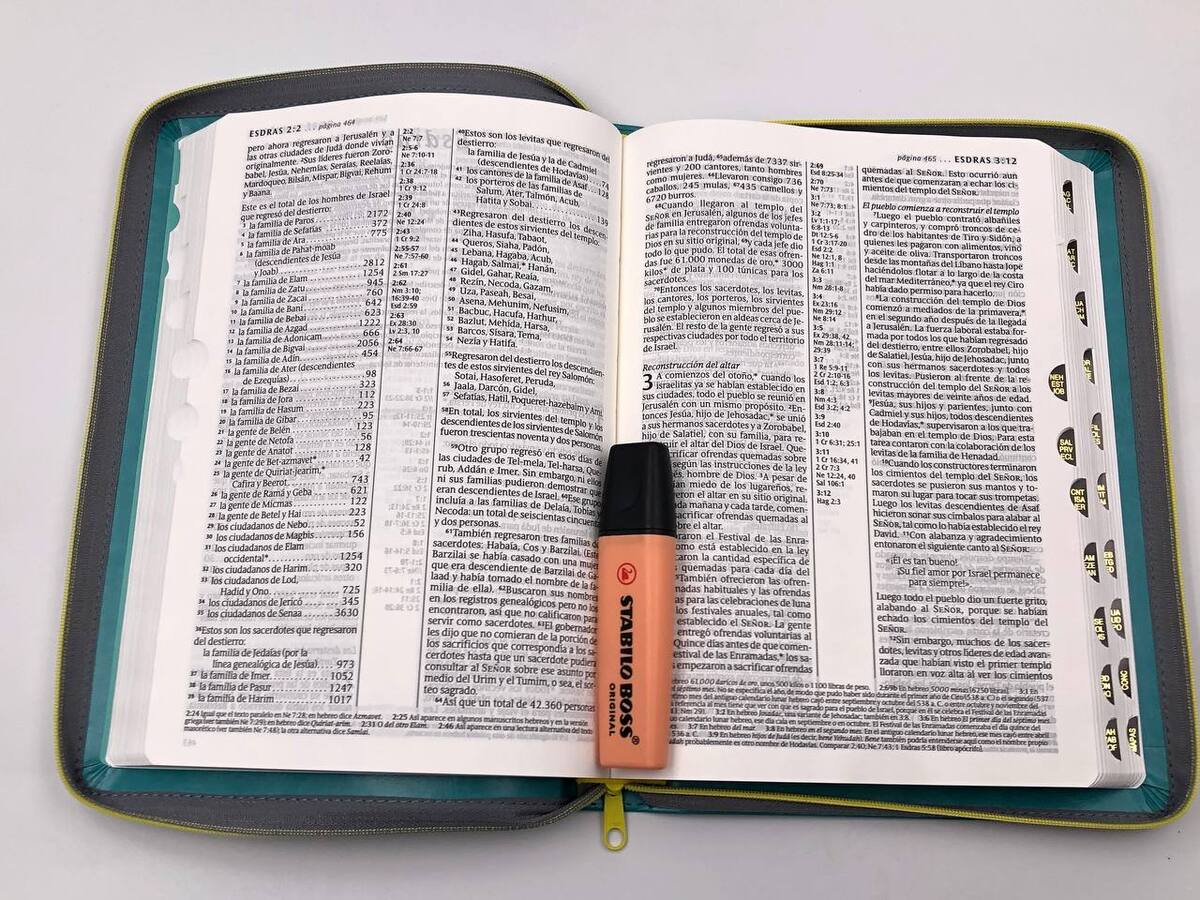 ESDRAS 2:2 página 464
pero ahora regresaron a Jerusalén y a
las otras ciudades de Judá donde vivían
originalmente. ²Sus líderes fueron Zoro-
babel, Jesúa, Nehemías, Seraías, Reelaías,
Mardoqueo, Bilsán, Mispar, Bigvai, Rehum
y Baana.
Este es el total de los hombres de Israel
que regresó del destierro:
3 la familia de Paros 2172
4 la familia de Sefatías 372
5 la familia de Ara 775
6 la familia de Pahat-moab
(descendientes de Jesúa
y Joab) 2812
7 la familia de Elam 1254
8 la familia de Zatu 945
9 la familia de Zacai 760
10 la familia de Bani 642
11 la familia de Bebai 623
12 la familia de Azgad 1222
13 la familia de Adonicam 666
14 la familia de Bigvai 2056
15 la familia de Adín 454
16 la familia de Ater (descendientes
de Ezequías) 98
17 la familia de Bezai 323
18 la familia de Jora 112
19 la familia de Hasum 223
20 la familia de Gibar 95
21 la gente de Belén 123
22 la gente de Netofa 56
23 la gente de Anatot 128
24 la gente de Bet-azmavet* 42
25 la gente de Quiriat-jearim,*
Cafira y Beerot 743
26 la gente de Ramá y Geba 621
27 la gente de Micmas 122
28 la gente de Betel y Hai 223
29 los ciudadanos de Nebo 52
30 los ciudadanos de Magbis 156
31 los ciudadanos de Elam
occidental* 1254
32 los ciudadanos de Harim 320
33 los ciudadanos de Lod,
Hadid y Ono 725
34 los ciudadanos de Jericó 345
35 los ciudadanos de Senaa 3630
³⁶Estos son los sacerdotes que regresaron
del destierro:
la familia de Jedaías (por la
línea genealógica de Jesúa) 973
37 la familia de Imer 1052
38 la familia de Pasur 1247
39 la familia de Harim 1017
2:2
Ne 7:7
2:5-6
Ne 7:10-11
2:36
1 Cr 24:7-18
2:38
1 Cr 9:12
2:39
1 Cr 24:8
2:40
Ne 12:24
2:43
1 Cr 9:2
2:55-57
Ne 7:57-60
2:61
2 Sm 17:27
2:62
Nm 3:10;
16:39-40
Esd 2:59
2:63
Ex 28:30
Lv 2:3, 10
2:64
Ne 7:66-67
⁴⁰Estos son los levitas que regresaron del
destierro:
la familia de Jesúa y la de Cadmiel
(descendientes de Hodavías) 74
41 los cantores de la familia de Asaf 128
42 los porteros de las familias de
Salum, Ater, Talmón, Acub,
Hatita y Sobai 139
⁴³Regresaron del destierro los descen-
dientes de estos sirvientes del templo:
Ziha, Hasufa, Tabaot,
44 Queros, Siaha, Padón,
45 Lebana, Hagaba, Acub,
46 Hagab, Salmai,* Hanán,
47 Gidel, Gahar, Reaía,
48 Rezín, Necoda, Gazam,
49 Uza, Paseah, Besai,
50 Asena, Mehunim, Nefusim,
51 Bacbuc, Hacufa, Harhur,
52 Bazlut, Mehída, Harsa,
53 Barcos, Sísara, Tema,
54 Nezía y Hatifa.
⁵⁵Regresaron del destierro los descendien-
tes de estos sirvientes del rey Salomón:
Sotai, Hasoferet, Peruda,
56 Jaala, Darcón, Gidel,
57 Sefatías, Hatil, Poqueret-hazebaim y Ami.
⁵⁸En total, los sirvientes del templo y los
descendientes de los sirvientes de Salomón
fueron trescientas noventa y dos personas.
⁵⁹Otro grupo regresó en esos días de
las ciudades de Tel-mela, Tel-harsa, Que-
rub, Addán e Imer. Sin embargo, ni ellos
ni sus familias pudieron demostrar que
eran descendientes de Israel. ⁶⁰Ese grupo
incluía a las familias de Delaía, Tobías y
Necoda: un total de seiscientas cincuenta
y dos personas.
⁶¹También regresaron tres familias de
sacerdotes: Habaía, Cos y Barzilai. (Este
Barzilai se había casado con una mujer
que era descendiente de Barzilai de Ga-
laad y había tomado el nombre de la fa-
milia de ella). ⁶²Buscaron sus nombres
en los registros genealógicos pero no los
encontraron, así que no calificaron para
servir como sacerdotes. ⁶³El gobernador
les dijo que no comieran de la porción de
los sacrificios que correspondía a los sa-
cerdotes hasta que un sacerdote pudiera
consultar al SEÑOR sobre ese asunto por
medio del Urim y el Tumim, o sea, el sor-
teo sagrado.
⁶⁴Así que un total de 42.360 personas
2:24 Igual que el texto paralelo en Ne 7:28; en hebreo dice Azmavet. 2:25 Así aparece en algunos manuscritos hebreos y en la versión
griega (ver también Ne 7:29); en hebreo dice Quiriat-arim. 2:31 O del otro Elam. 2:46 Así aparece en una lectura alternativa del texto
masorético (ver también Ne 7:48); la otra alternativa dice Samlai.
página 465 ... ESDRAS 3:12
regresaron a Judá, ⁶⁵además de 7337 sir-
vientes y 200 cantores, tanto hombres
como mujeres. ⁶⁶Llevaron consigo 736
caballos, 245 mulas, ⁶⁷435 camellos y
6720 burros.
⁶⁸Cuando llegaron al templo del
SEÑOR en Jerusalén, algunos de los jefes
de familia entregaron ofrendas volunta-
rias para la reconstrucción del templo de
Dios en su sitio original; ⁶⁹y cada jefe dio
todo lo que pudo. El total de esas ofren-
das fue 61.000 monedas de oro,* 3000
kilos* de plata y 100 túnicas para los
sacerdotes.
⁷⁰Entonces los sacerdotes, los levitas,
los cantores, los porteros, los sirvientes
del templo y algunos miembros del pue-
blo se establecieron en aldeas cerca de Je-
rusalén. El resto de la gente regresó a sus
respectivas ciudades por todo el territorio
de Israel.
Reconstrucción del altar
3 A comienzos del otoño,* cuando los
israelitas ya se habían establecido en
sus ciudades, todo el pueblo se reunió en
Jerusalén con un mismo propósito. ²En-
tonces Jesúa, hijo de Jehosadac,* se unió
a sus hermanos sacerdotes y a Zorobabel,
hijo de Salatiel, con su familia, para re-
uir el altar del Dios de Israel. Que-
crificar ofrendas quemadas sobre
según las instrucciones de la ley
és, hombre de Dios. ³A pesar de
nían miedo de los lugareños, re-
eron el altar en su sitio original.
ada mañana y cada tarde, comen-
sacrificar ofrendas quemadas al
sobre el altar.
ron el Festival de las Enra-
omo está establecido en la ley
aron la cantidad específica de
quemadas para cada día del
⁵También ofrecieron las ofren-
nadas habituales y las ofrendas
s para las celebraciones de luna
los festivales anuales, tal como
establecido el SEÑOR. La gente
entregó ofrendas voluntarias al
Quince días antes de que comen-
estival de las Enramadas,* los sa-
empezaron a sacrificar ofrendas
2:69
Esd 8:25-34
2:70
Ne 7:73
3:1
Ne 7:73; 8:1
3:2
Lv 1:1-17;
6:8-13
Dt 12:5-6
1 Cr 3:17-20
Esd 2:2
Ne 12:1, 8
Hag 1:1
Za 6:11
3:3
Nm 28:1-8
3:4
Ex 23:16
Nm 29:12
Ne 8:14
3:5
Ex 29:38, 42
Nm 28:11-14;
29:39
3:7
1 Re 5:9-11
2 Cr 2:10-16
Esd 1:2; 6:3
3:8
Nm 4:3
Esd 3:2; 4:2
3:9
Esd 2:40
3:10
1 Cr 6:31; 25:1
3:11
1 Cr 16:34, 41
2 Cr 7:3
Ne 12:24, 40
Sal 106:1
3:12
Hag 2:3
quemadas al SEÑOR. Esto ocurrió aun
antes de que comenzaran a echar los ci-
mientos del templo del SEÑOR.
El pueblo comienza a reconstruir el templo
⁷Luego el pueblo contrató albañiles
y carpinteros, y compró troncos de ce-
dro de los habitantes de Tiro y Sidón, a
quienes les pagaron con alimentos, vino
y aceite de oliva. Transportaron troncos
desde las montañas del Líbano hasta Jope
haciéndolos flotar a lo largo de la costa
del mar Mediterráneo,* ya que el rey Ciro
había dado permiso para hacerlo.
⁸La construcción del templo de Dios
comenzó a mediados de la primavera,*
en el segundo año después de la llegada
a Jerusalén. La fuerza laboral estaba for-
mada por todos los que habían regresado
del destierro, entre ellos Zorobabel, hijo
de Salatiel, Jesúa, hijo de Jehosadac, junto
con sus hermanos sacerdotes y todos
los levitas. Pusieron al frente de la re-
construcción del templo del SEÑOR a los
levitas mayores de veinte años de edad.
⁹Jesúa, sus hijos y parientes, junto con
Cadmiel y sus hijos, todos descendientes
de Hodavías,* supervisaron a los que tra-
bajaban en el templo de Dios. Para esta
tarea contaron con la colaboración de los
levitas de la familia de Henadad.
¹⁰Cuando los constructores terminaron
los cimientos del templo del SEÑOR, los
sacerdotes se pusieron sus mantos y to-
maron su lugar para tocar sus trompetas.
Luego los levitas descendientes de Asaf
hicieron sonar sus címbalos para alabar al
SEÑOR, tal como lo había establecido el rey
David. ¹¹Con alabanza y agradecimiento
entonaron el siguiente canto al SEÑOR:
«¡Él es tan bueno!
¡Su fiel amor por Israel permanece
para siempre!»
Luego todo el pueblo dio un fuerte grito,
alabando al SEÑOR, porque se habían
echado los cimientos del templo del
SEÑOR.
¹²Sin embargo, muchos de los sacer-
dotes, levitas y otros líderes de edad avan-
zada que habían visto el primer templo
lloraron en voz alta al ver los cimientos
STABILO BOSS
ORIGINAL
NEH
EST
JOB
SAL
PRV
ECL
CNT
ISA
JER
MAPAS
CONC